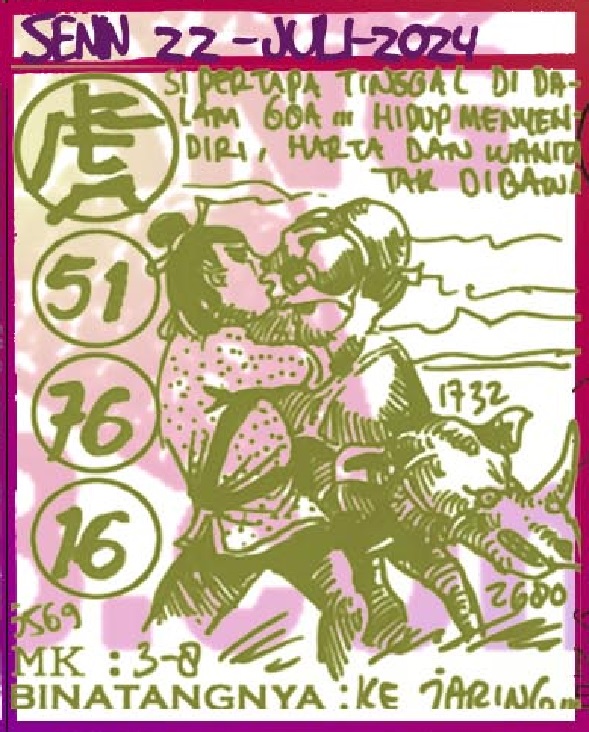 SENIN 22-JULI-2024
SI PERTAPA TINGGAL DI DA-
LAM GOA ... HIDUP MENYEN-
DIRI, HARTA DAN WANITA
TAK DIBAWA
虎
51
76
16
1732
2680
5569
MK : 3-8
BINATANGNYA : KE JARING...